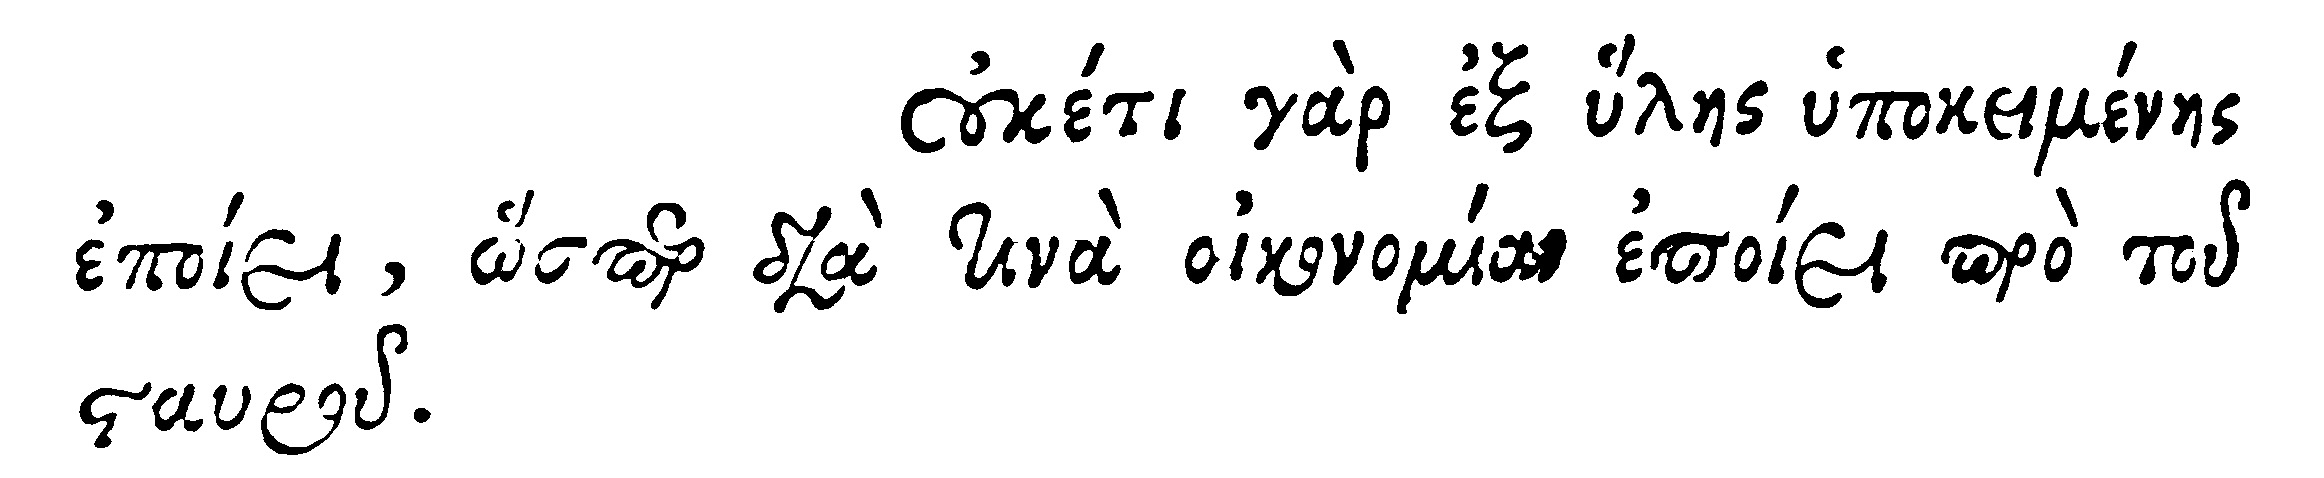 οὐκέτι γὰρ ἐξ ὕλης ὑποκειμένης
ἐποίει, ὥσπερ διὰ τινὰ οἰκονομίαν ἐποίει πρὸ τοῦ
σταυροῦ.